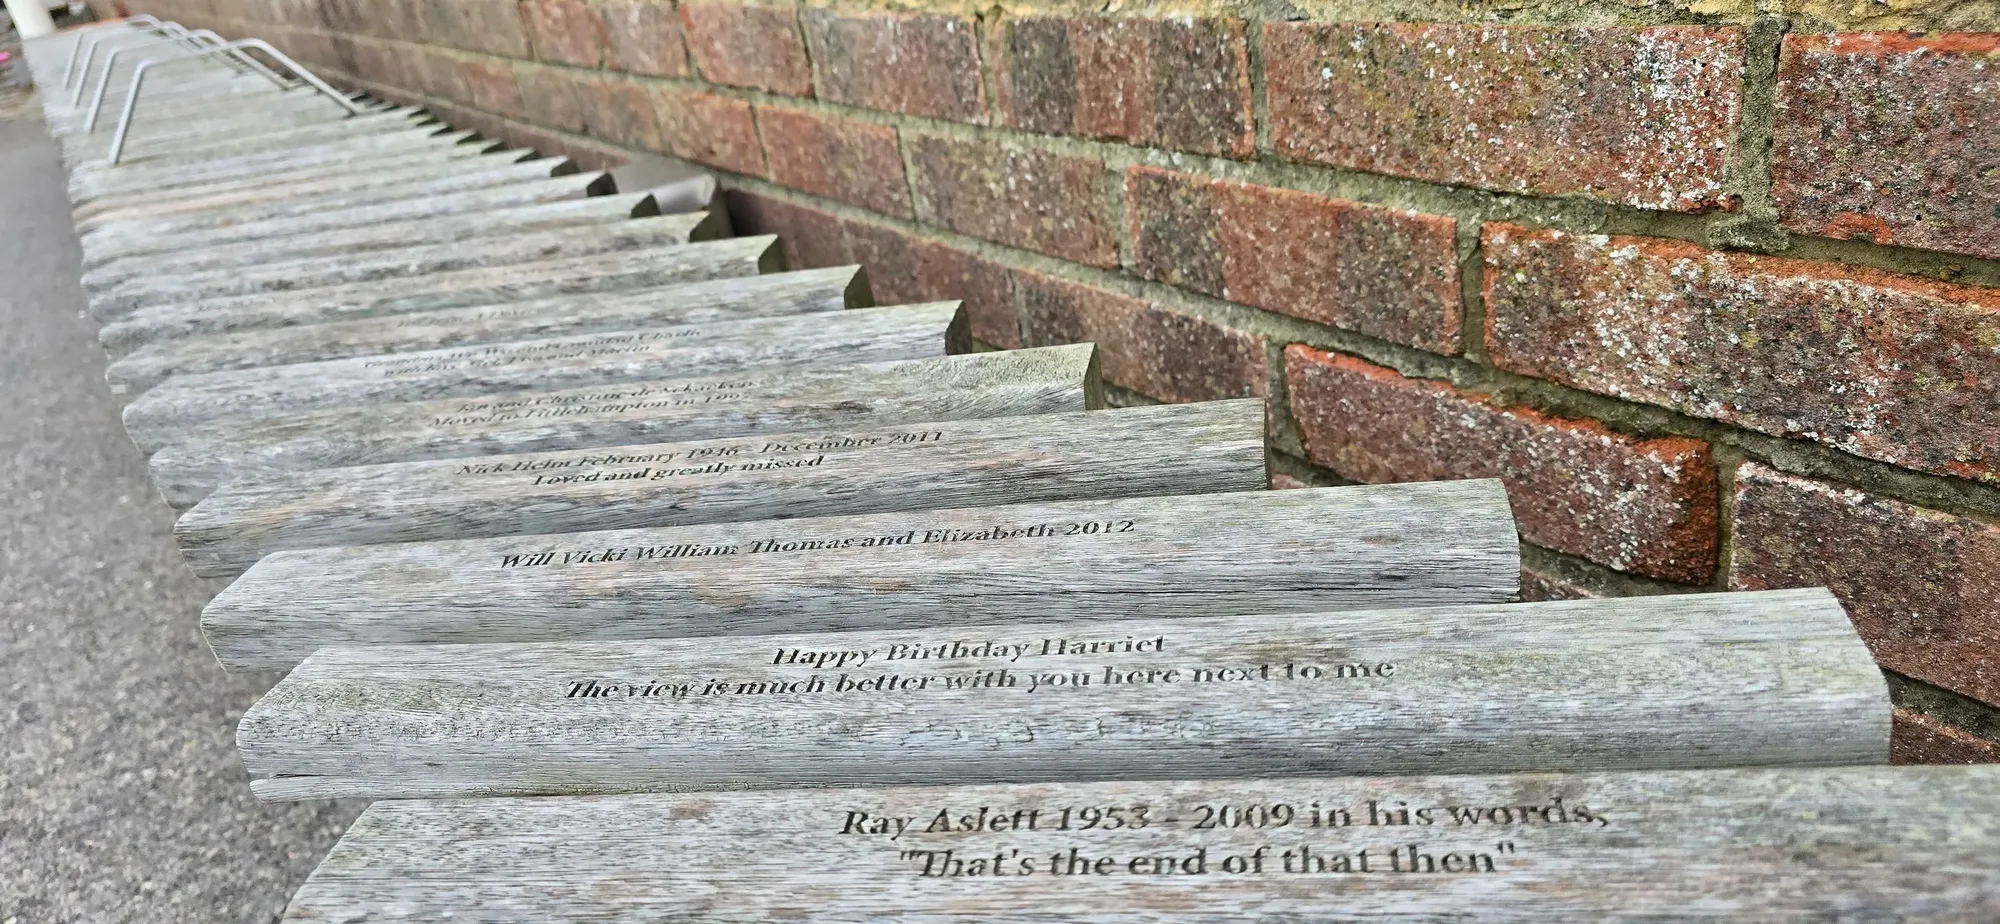 Moved to Littlehampton in 1997
Nick Helm February 1946 - December 2011
Loved and greatly missed
Will Vicki William Thomas and Elizabeth 2012
Happy Birthday Harriet
The view is much better with you here next to me
Ray Aslett 1953 - 2009 in his words,
"That's the end of that then"